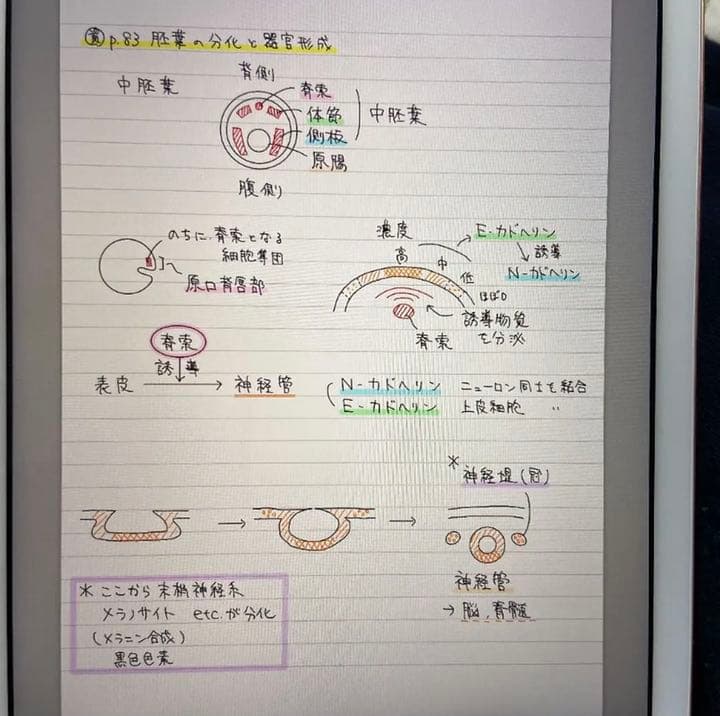 資 p.83 胚葉の分化と器官形成
中胚葉
背側
脊索
体節
側板
原腸
中胚葉
腹側
のちに脊索となる
細胞集団
原口背唇部
濃度
高 中 低 ほぼ0
E-カドヘリン
誘導
N-カドヘリン
誘導物質
を分泌
脊索
脊索
誘導
表皮 → 神経管
N-カドヘリン ニューロン同士を結合
E-カドヘリン 上皮細胞 〃
* 神経堤(冠)
神経管
→ 脳、脊髄
* ここから末梢神経系
メラノサイト etc.が分化
(メラニン合成)
黒色色素